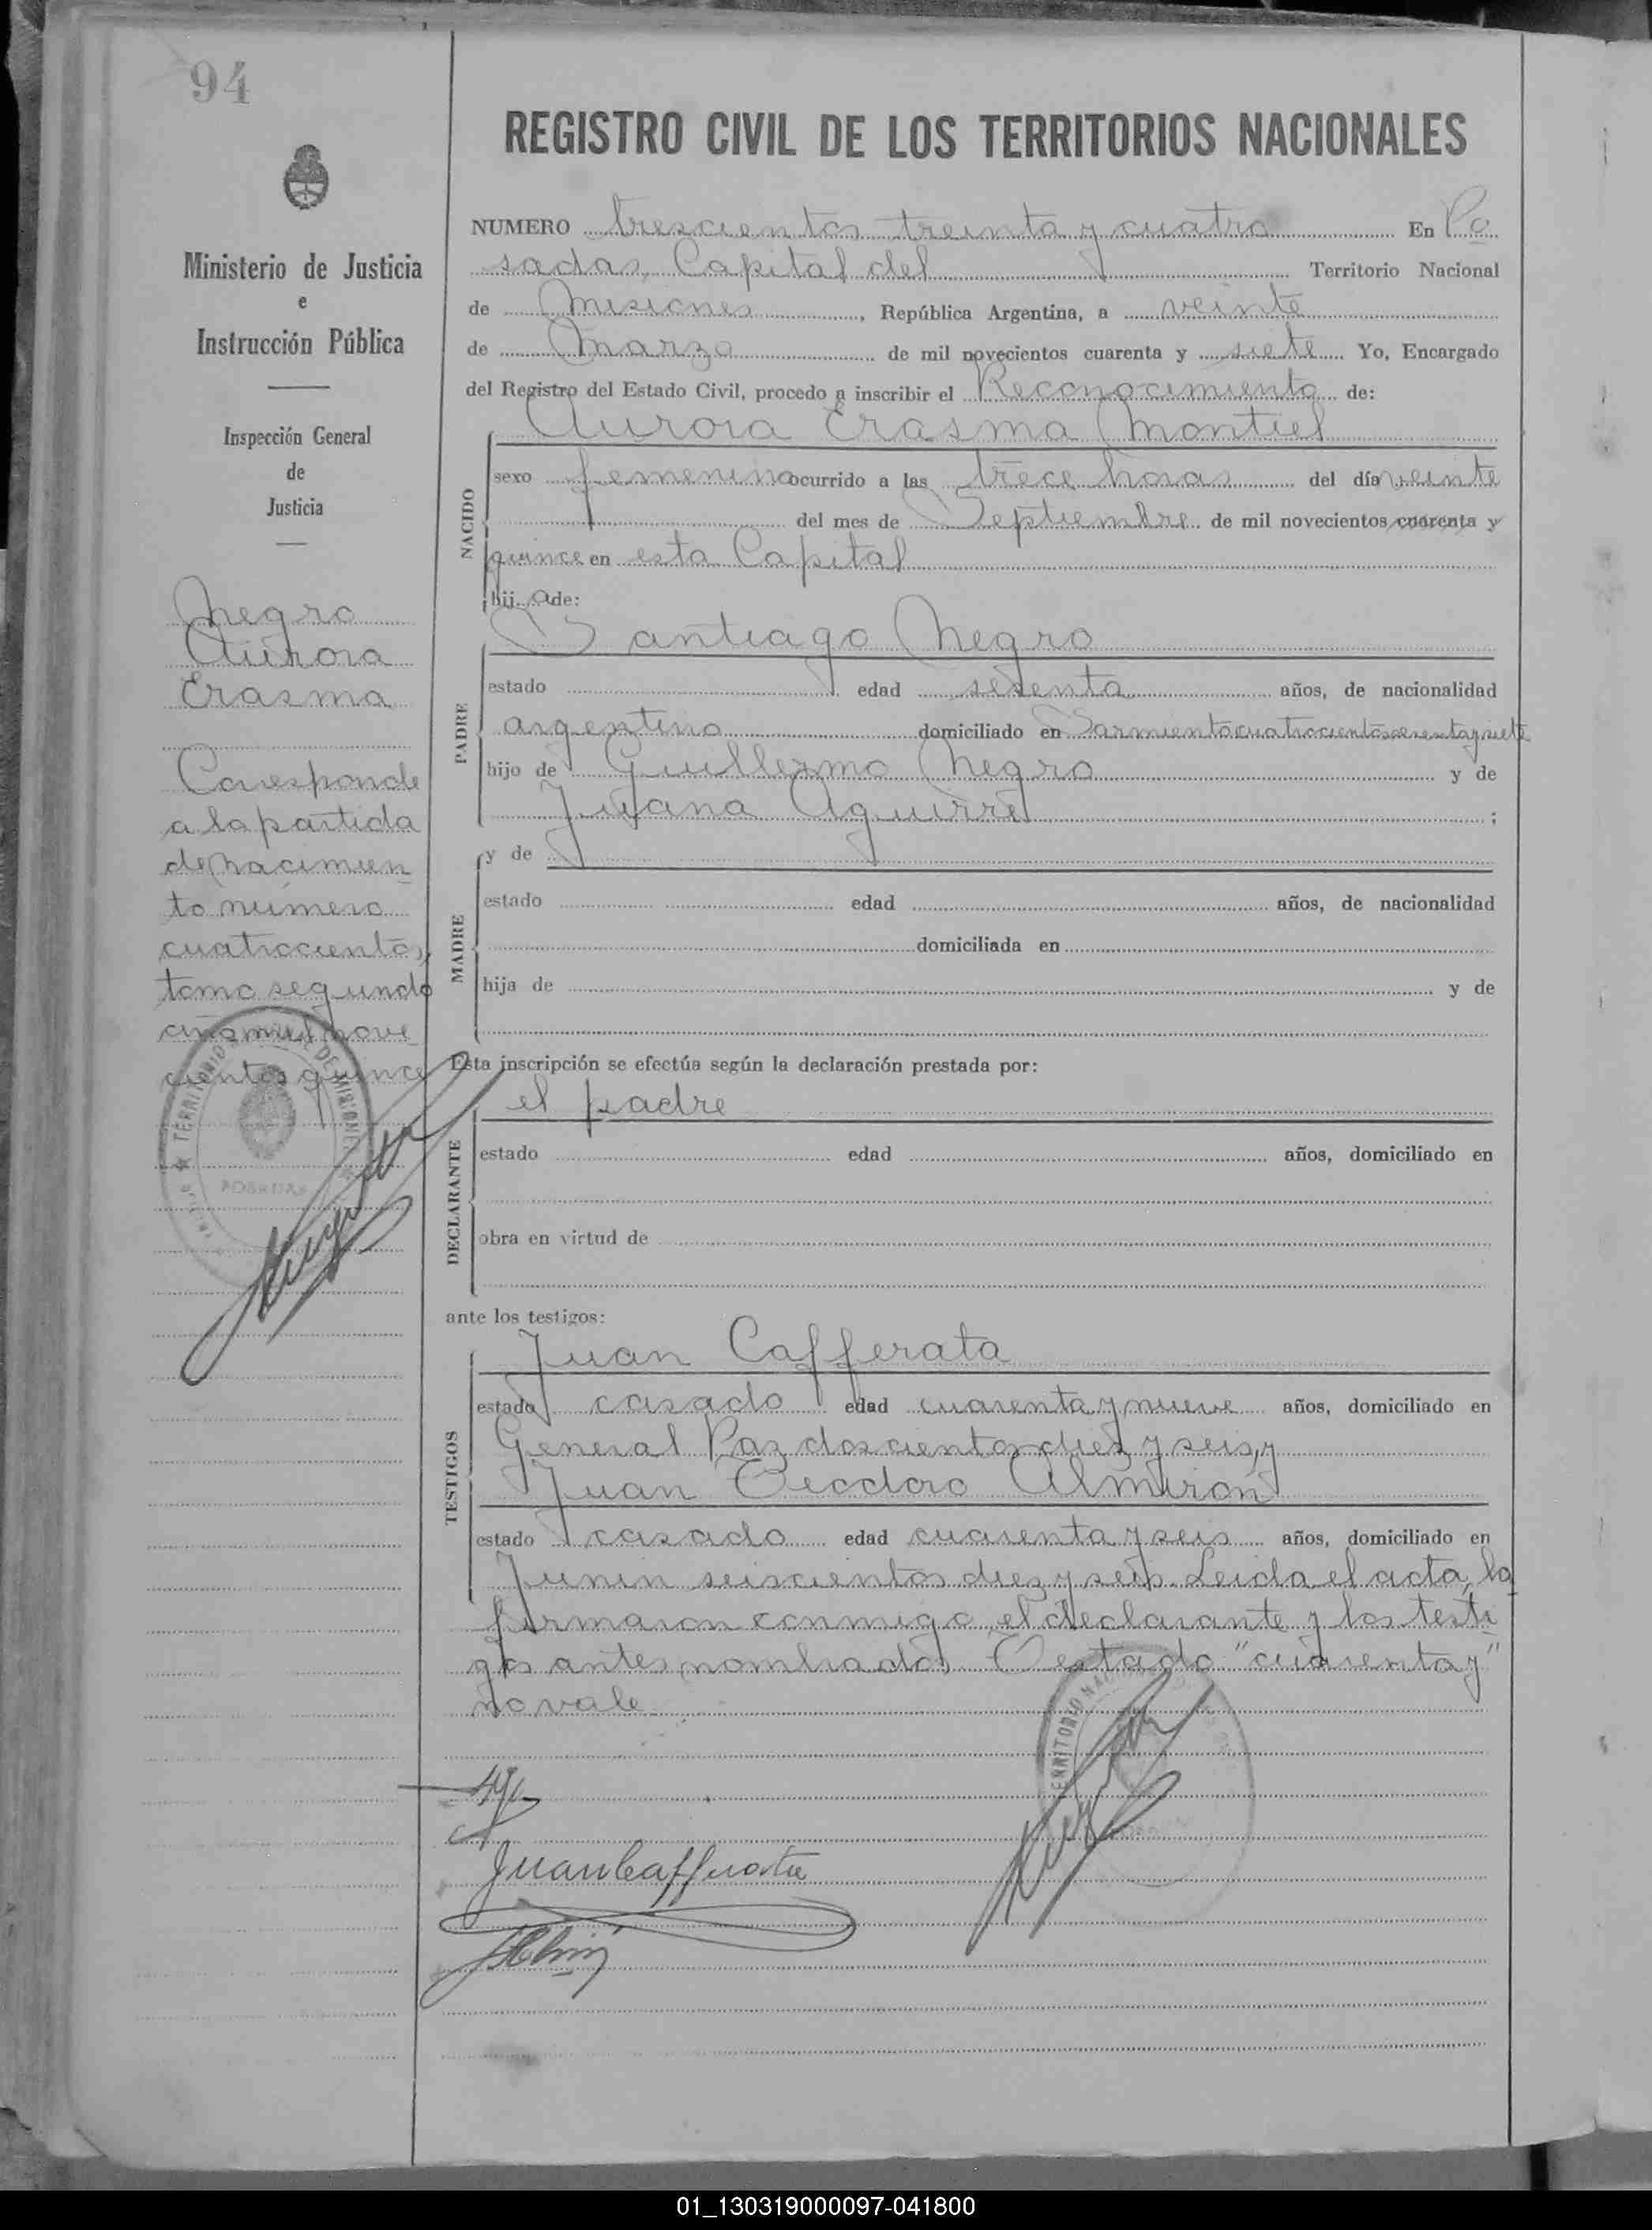 94
Ministerio de Justicia
e
Instrucción Pública
Inspección General
de
Justicia
Negro
Aurora
Erasma
Corresponde
a la partida
de nacimien
to número
cuatrocientos,
tomo segundo
año mil nove
cientos quince
TERRITORIO DE MISIONES
POSADAS
REGISTRO CIVIL DE LOS TERRITORIOS NACIONALES
NUMERO trescientos treinta y cuatro En Po
sadas, Capital del Territorio Nacional
de Misiones, República Argentina, a veinte
de Marzo de mil novecientos cuarenta y siete Yo, Encargado
del Registro del Estado Civil, procedo a inscribir el Reconocimiento de:
Aurora Erasma Montiel
NACIDO
sexo femenino ocurrido a las trece horas del día veinte
del mes de Septiembre de mil novecientos cuarenta y
quince en esta Capital
hij a de:
Santiago Negro
PADRE
estado edad sesenta años, de nacionalidad
argentino domiciliado en Sarmiento cuatrocientos sesenta y siete
hijo de Guillermo Negro y de
Juana Aguirre ;
y de
MADRE
estado edad años, de nacionalidad
domiciliada en
hija de y de
Esta inscripción se efectúa según la declaración prestada por:
el padre
DECLARANTE
estado edad años, domiciliado en
obra en virtud de
ante los testigos:
Juan Cafferata
TESTIGOS
estado casado edad cuarenta y nueve años, domiciliado en
General Paz doscientos diez y seis, y
Juan Teodoro Almirón
estado casado edad cuarenta y seis años, domiciliado en
Junin seiscientos diez y seis. Leida el acta, la
firmaron conmigo, el declarante y los testi
gos antes nombrados. Testado "cuarenta y"
no vale
TERRITORIO NAC
Juan Cafferata
01_130319000097-041800